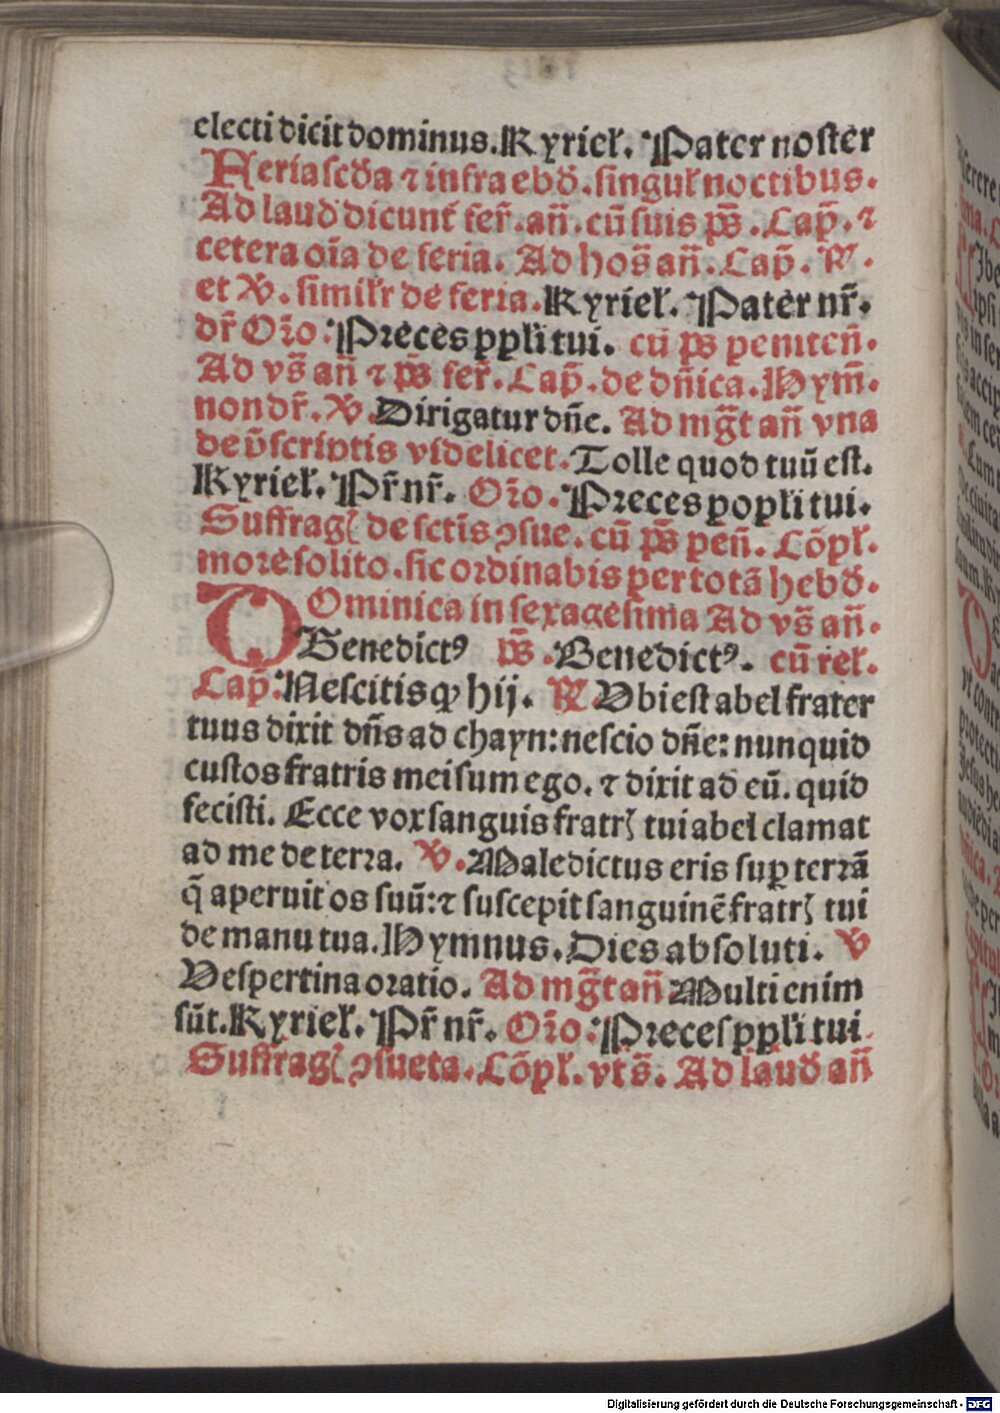 electi dicit dominus. Kyriel̃. Pater noster
Feria scd̃a ⁊ infra ebd̃. singul̃ noctibus.
Ad laud̃ dicunt̃ fer̃. añ. cũ suis ps̃. Cap̃. ⁊
cetera oĩa de feria. Ad hos̃ añ. Cap̃. ℟.
et ℣. simil̃r de feria. Kyriel̃. Pater nr̃.
dr̃ Or̃o: Preces ppl̃i tui. cũ ps̃ peniten̄.
Ad vs̃ añ ⁊ ps̃ fer̃. Cap̃. de dñica. Hym̃.
non dr̃. ℣. Dirigatur dñe. Ad mg̃t añ vna
de ṽscriptis videlicet. Tolle quod tuũ est.
Kyriel̃. Pr̃ nr̃. Or̃o. Preces popl̃i tui.
Suffrag̃ de sctĩs ꝯsue. cũ ps̃ peñ. Cõpl̃.
more solito. sic ordinabis per totã hebd̃.
DOminica in sexagesima Ad vs̃ añ.
Benedictꝰ ps̃. Benedictꝰ. cũ rel̃.
Cap̃. Nescitis ꝙ hij. ℟. Vbi est abel frater
tuus dixit dñs ad chayn: nescio dñe: nunquid
custos fratris mei sum ego. ⁊ dixit ad eũ. quid
fecisti. Ecce vox sanguis fratrꝭ tui abel clamat
ad me de terra. ℣. Maledictus eris suꝑ terrã
q̃ aperuit os suũ: ⁊ suscepit sanguinẽ fratrꝭ tui
de manu tua. Hymnus. Dies absoluti. ℣
Vespertina oratio. Ad mg̃t añ Multi enim
sũt. Kyriel̃. Pr̃ nr̃. Or̃o: Preces ppl̃i tui
Suffrag̃ ꝯsueta. Cõpl̃. vts̃. Ad laud̃ añ
Digitalisierung gefördert durch die Deutsche Forschungsgemeinschaft - DFG